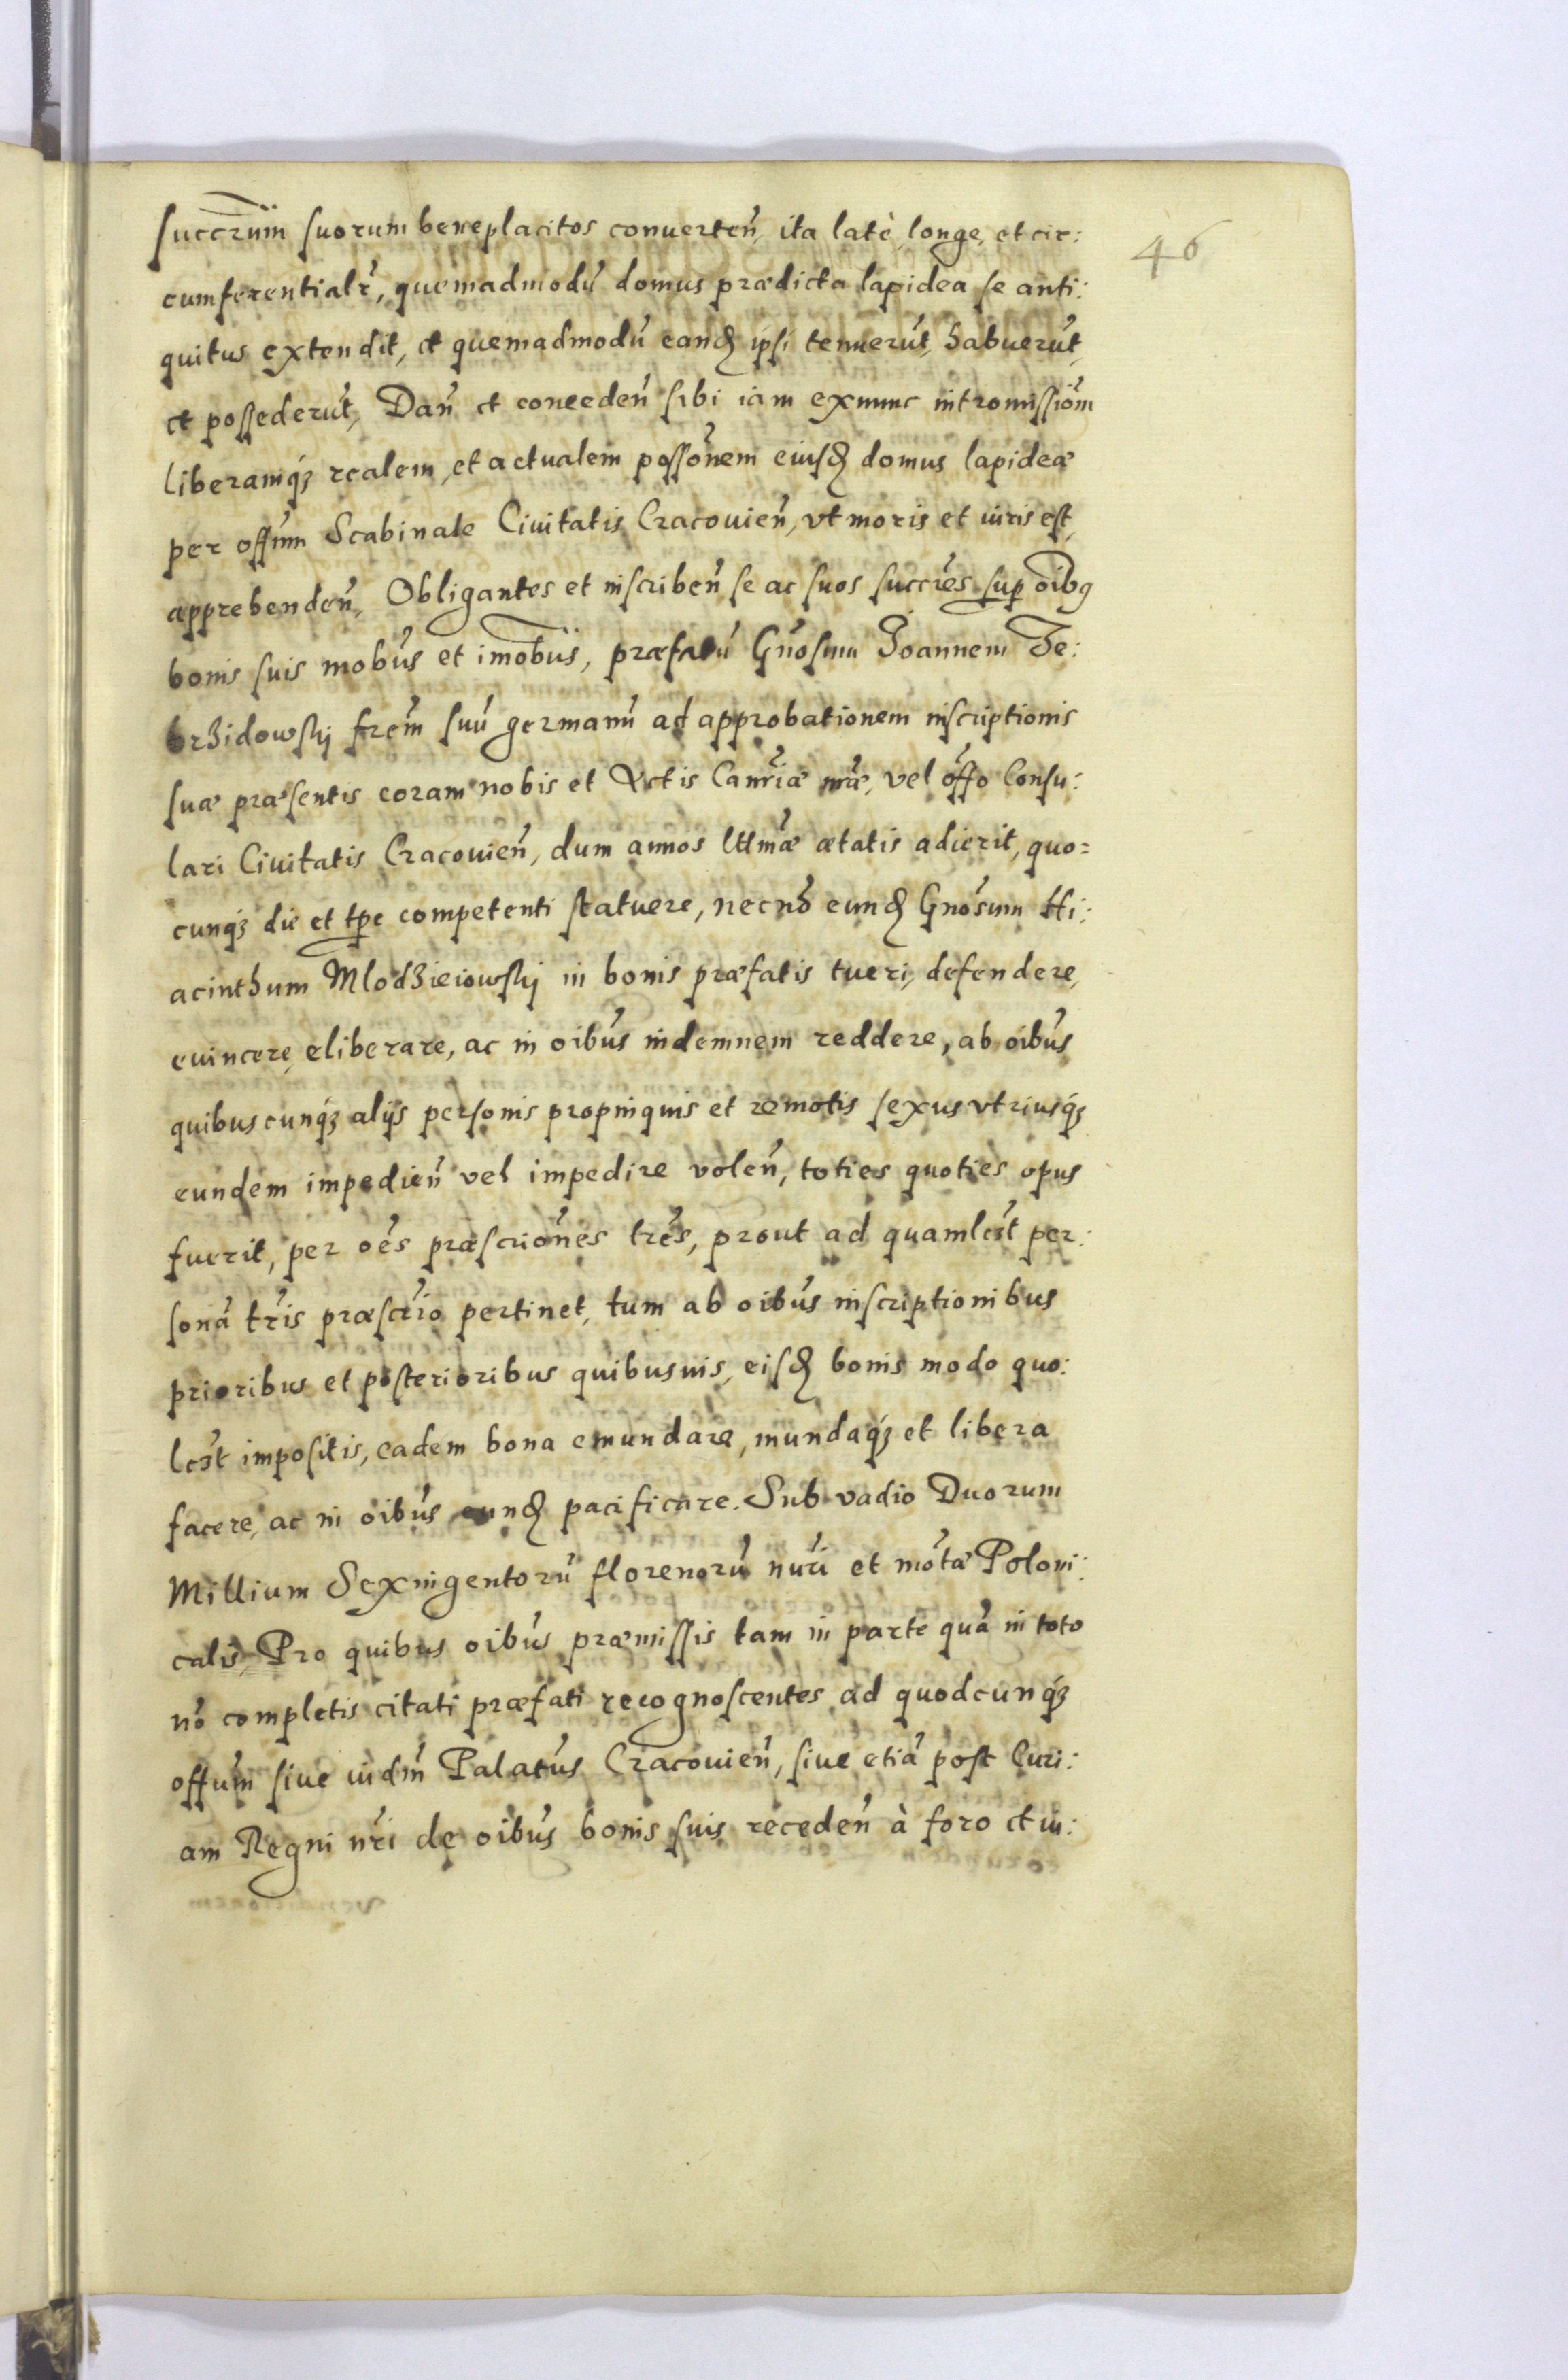 succrum̃ suorum beneplacitos conuerteñ, ita latè, longe, et cir:
46
cumferentialr̃, quemadmodũ domus prædicta lapidea se anti:
quitus extendit, et quemadmodũ eand ipsi tenuerũt, habuerũt,
et possederũt, Dañ et concedeñ sibi iam exnunc intromissiõm
liberamqȝ realem, et actualem possõnem eiusd domus lapideæ
per offm̃ Scabinale Ciuitatis Cracouieñ, vt moris et iuris est,
apprehendeñ, Obligantes et inscribeñ se ac suos succr̃es sup oĩbꝯ
bonis suis mobũs et imobũs, præfatũ Gñosum Joannem Ze:
brzidowskj frẽm suũ germanũ ad approbationem inscriptionis
suæ præsentis coram nobis et Actis Canr̃iæ nr̃æ, vel offõ Consu:
lari Ciuitatis Cracouieñ, dum annos lttmæ̃ ætatis adierit, quo=
cunqȝ die et tp̃e competenti statuere, necnõ eund Gnõsum Hi:
acinthum Mlodzieiowskj in bonis præfatis tueri, defendere,
euincere, eliberare, ac in oibũs indemnem reddere, ab oibũs
quibuscunqȝ alijs personis propinquis et remotis sexus vtriusqȝ
eundem impedieñ vel impedire voleñ, toties quoties opus
fuerit, per oẽs præscriõnes trẽs, prout ad quamlẽt per:
sonã tr̃is præscr̃io pertinet, tum ab oibũs inscriptionibus
prioribus et posterioribus quibusuis, eisd bonis modo quo:
lẽt impositis, eadem bona emundare, mundaqȝ et libera
facere, ac in oibũs eund pacificare. Sub vadio Duorum
Millium Sexingentorũ florenorũ nur̃i et mõtæ Poloni:
calis, Pro quibus oibũs præmissis tam in parte quã in toto
nõ completis citati præfati recognoscentes ad quodcunqȝ
offũm siue iudm̃ Palatũs Cracouieñ, siue etiã post Curi:
am Regni nr̃i de oibũs bonis suis recedeñ à foro et iu: